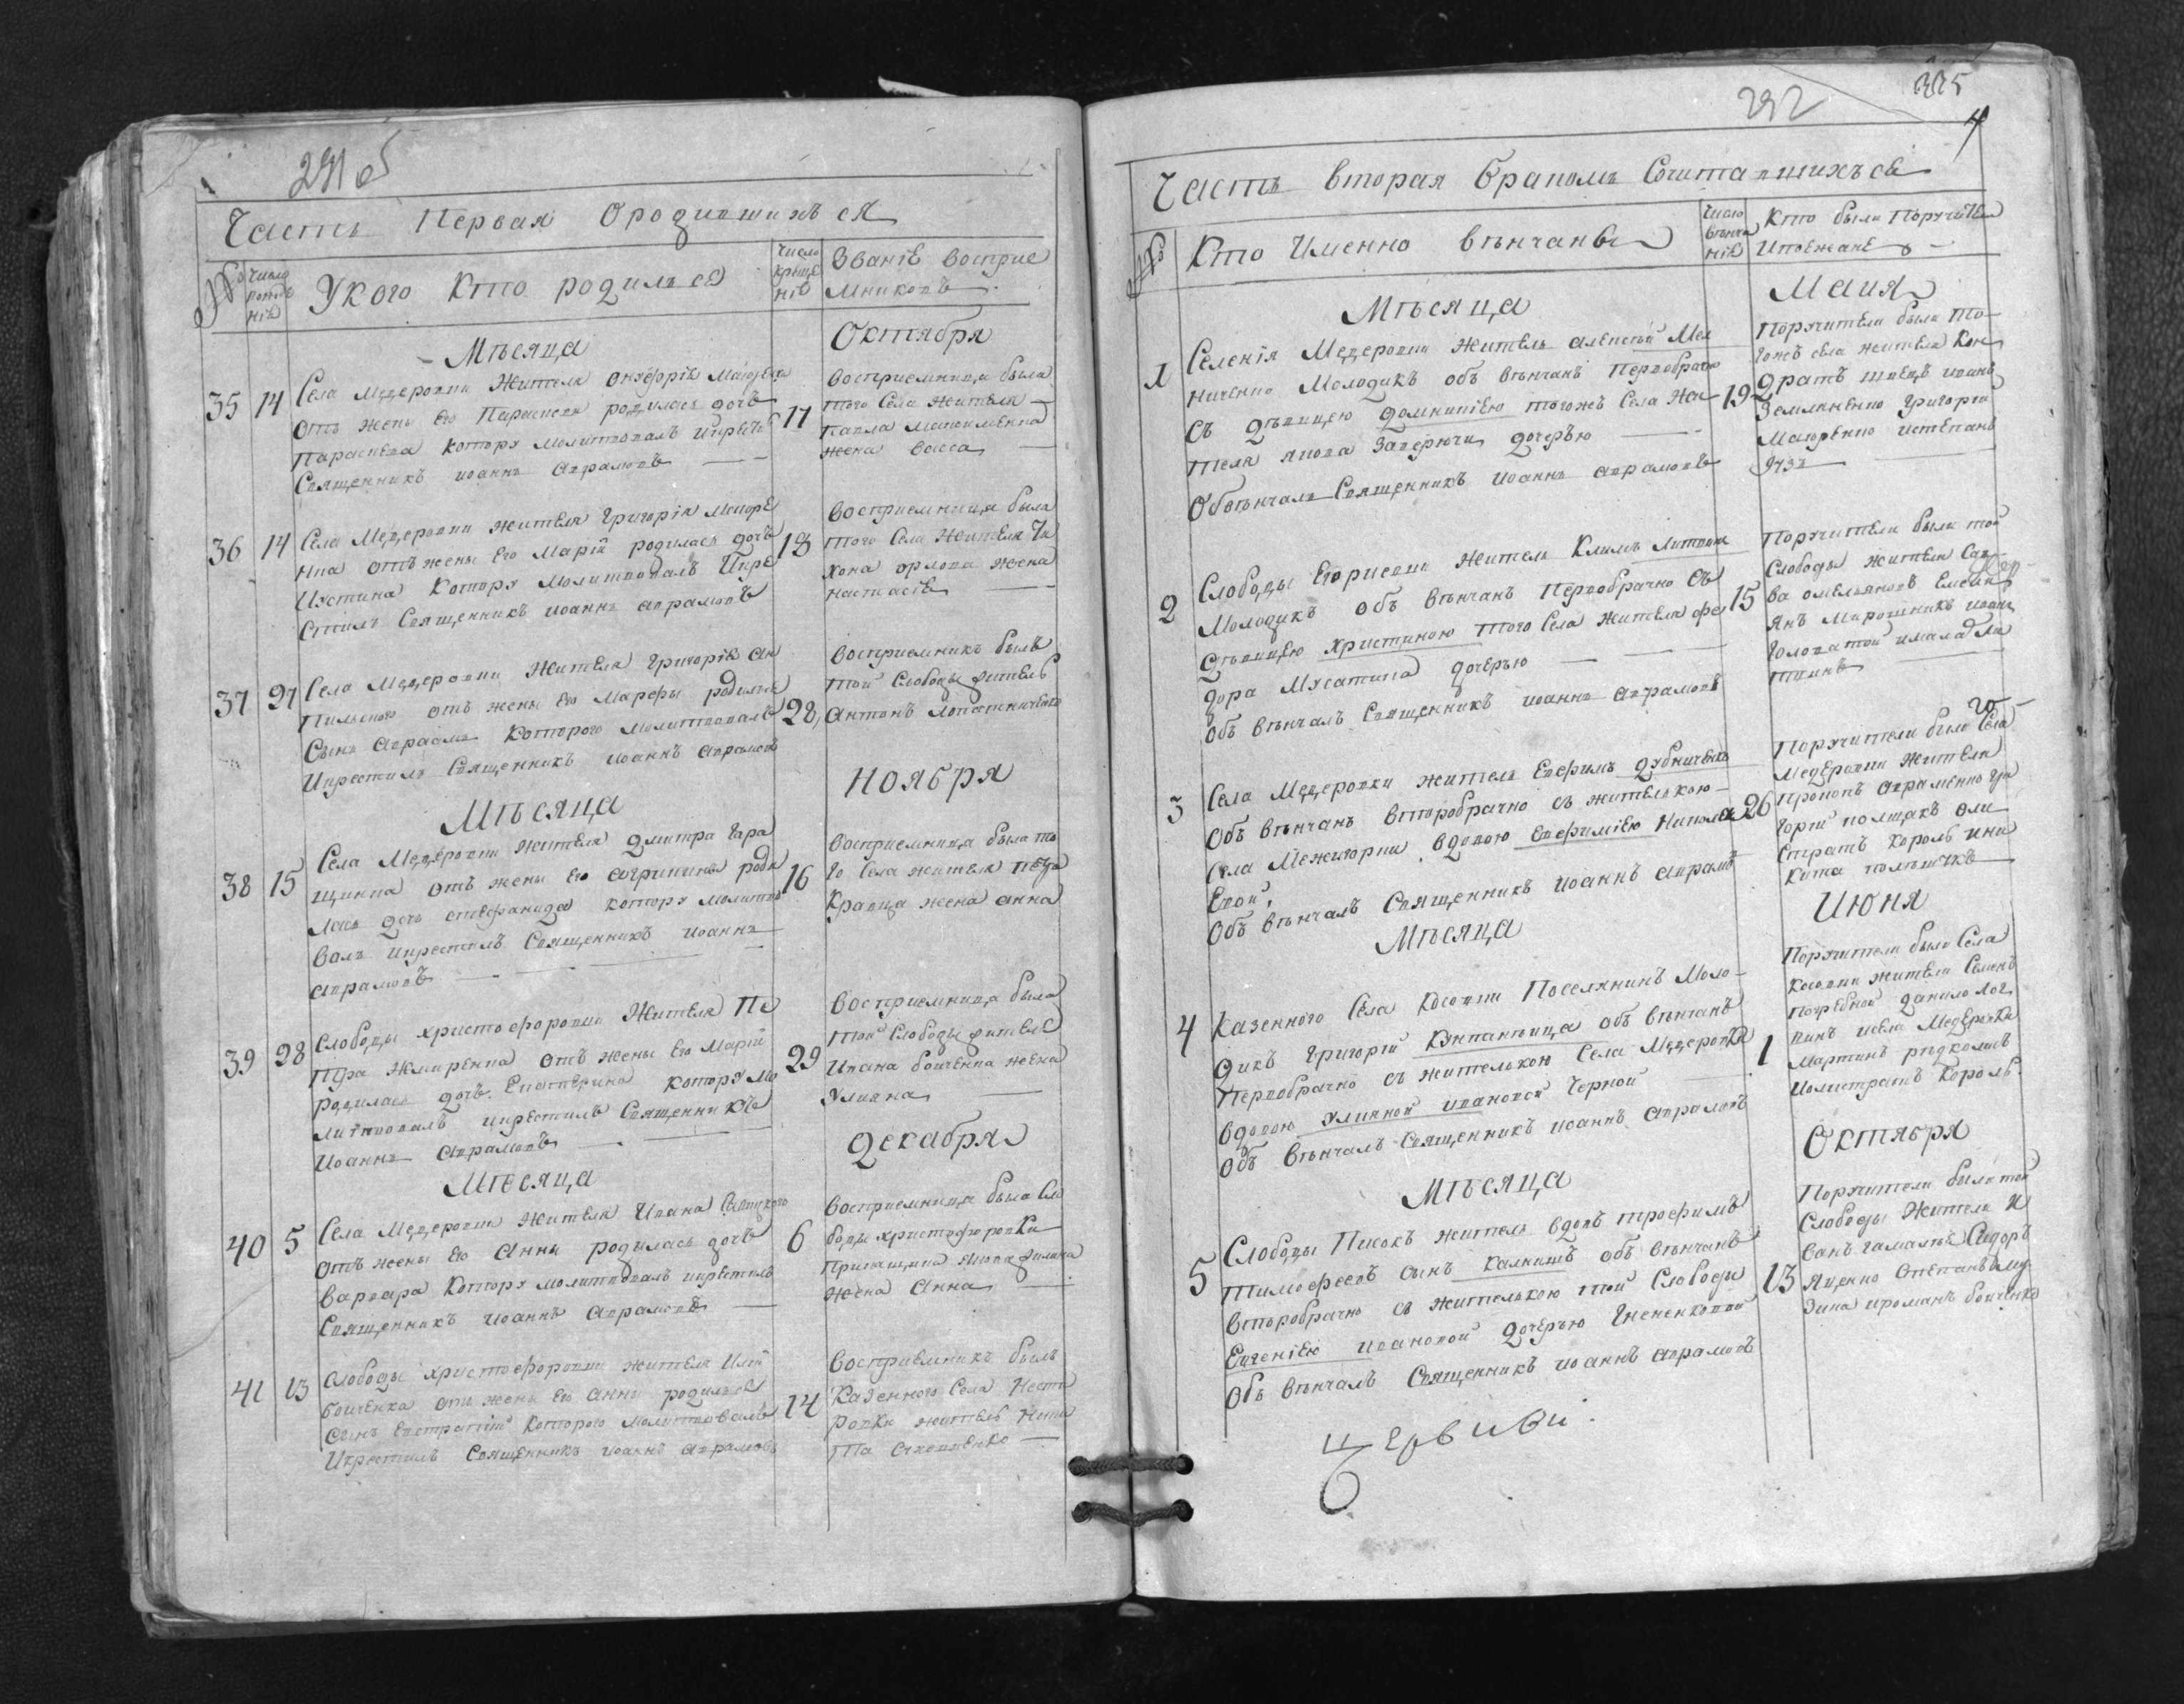 291 об
Часть Первая Ородившихъ ся
№ Число рожде ніѣ
Укого Кто родилъся
Число креще ніѣ
Званіѣ Восприе
мниковъ
Мѣсяца
Октября
35 14
Села Медеровки Жителя Онуфріѣ
отъ жены Его Параскеви родилась дочь
Параскева которую молитвовалъ
Священникъ иоаннъ авраамовъ
17
восприемница была
того Села жителя
Павла жена Васса
36 14
Села Медеровки жителя Григорія Маюре
нка отъ жены Его Маріи родилась дочь
Иустина которую молитвовалъ Икре
стилъ Священникъ иоаннъ аврамовъ
18
восприемница была
того Села Жителя Ти
хона орлова жена
настасіѣ
37 27
Села Медеровки Жителя Григоріѣ
отъ жены Его Марфы родился
Сынъ авраамъ которого молитвовалъ
Икрестилъ Священникъ иоаннъ аврамовъ
28
восприемникъ былъ
той Слободы житель
антонъ
Мѣсяца
Ноября
38 15
Села Медеровки жителя Дмитра Гара
щинка отъ жены Его агрипины роди
лась дочь стефанида которую молитво
валъ икрестилъ Священникъ иоаннъ
аврамовъ
16
восприемница была то
го Села жителя
Кравца жена анна
39 28
Слободы христофоровки Жителя Пе
тра Жмиренка отъ жены Его Маріи
родилась дочь Екатерина которую мо
литвовалъ икрестилъ Священникъ
Иоаннъ аврамовъ
29
восприемница была
той Слободы жителя
Ивана бойченка жена
Улияна
Мѣсяца
Декабря
40 5
Села Медеровки жителя Ивана
отъ жены Его Анны родилась дочь
Варвара которую молитвовалъ икрестилъ
Священникъ иоаннъ аврамовъ
6
восприемница была Сло
боды христофоровки
жена Анна
41 13
Слободы христофоровки жителя Илии
бойченка отъ жены Его анны родился
сынъ Евстратій которого молитвовалъ
Икрестилъ Священникъ иоаннъ аврамовъ
14
Восприемникъ былъ
Казенного Села Несте
ровки житель Ники
та
292
325
4
Часть вторая бракомъ Сочитавшихъся
№
Кто Именно вѣнчаны
Число вѣнча ніѣ
Кто были Поручители
Ипоежанѣ
Мѣсяца
Маия
1
Селенія Медеровки житель алексѣй Мел
ниченко Молодикъ объ вѣнчанъ Первобрачно
Съ дѣвицею Домникіею тогожъ Села Жи
теля якова Заверюхи дочерью
Обвѣнчалъ Священникъ иоаннъ аврамовъ
19
Поручители были то
гожъ села жители Кон
дратъ швецъ иванъ
Земляненко григорій
Маюренко истепанъ
2
Слободы Егоровки Житель Климъ
Молодикъ объ вѣнчанъ Первобрачно Съ
дѣвицею христиною того Села Жителя фе
дора Мусатина дочерью
объ вѣнчалъ Священникъ иоаннъ аврамовъ
15
Поручители были той
Слободы жители Сав
ва омельяновъ
янъ Мирошникъ иванъ
3
Села Медеровки житель Евфимъ Дубниченко
объ вѣнчанъ второбрачно съ жителькою
Села Межигорки вдовою Евфиміею Никола
Евой
объ вѣнчалъ Священникъ иоаннъ аврамовъ
26
Поручители были Села
Медеровки Жители
Прокопъ авраменко гри
горій полщакъ ели
стратъ Король ини
кита
Мѣсяца
Июня
4
Казенного Села Косовки Поселянинъ Моло
дикъ Григорій объ вѣнчанъ
Первобрачно съ жителькою Села Медеровки
вдовою Улияной ивановой Черной
объ вѣнчалъ Священникъ иоаннъ аврамовъ
1
Поручители были Села
Косовки жители Семенъ
Погребной данило лог
винъ исела Медеровки
Мартинъ
Иелистратъ Король
Мѣсяца
Октября
5
Слободы Писокъ житель вдовъ трофимъ
тимофеевъ сынъ Калнишъ объ вѣнчанъ
второбрачно съ жителькою той Слободы
Евгеніею ивановой дочерью
объ вѣнчалъ Священникъ иоаннъ аврамовъ
13
Поручители были той
Слободы Жители И
ванъ гамалѣй Сидоръ
яценко степанъ
зина ироманъ бойченко